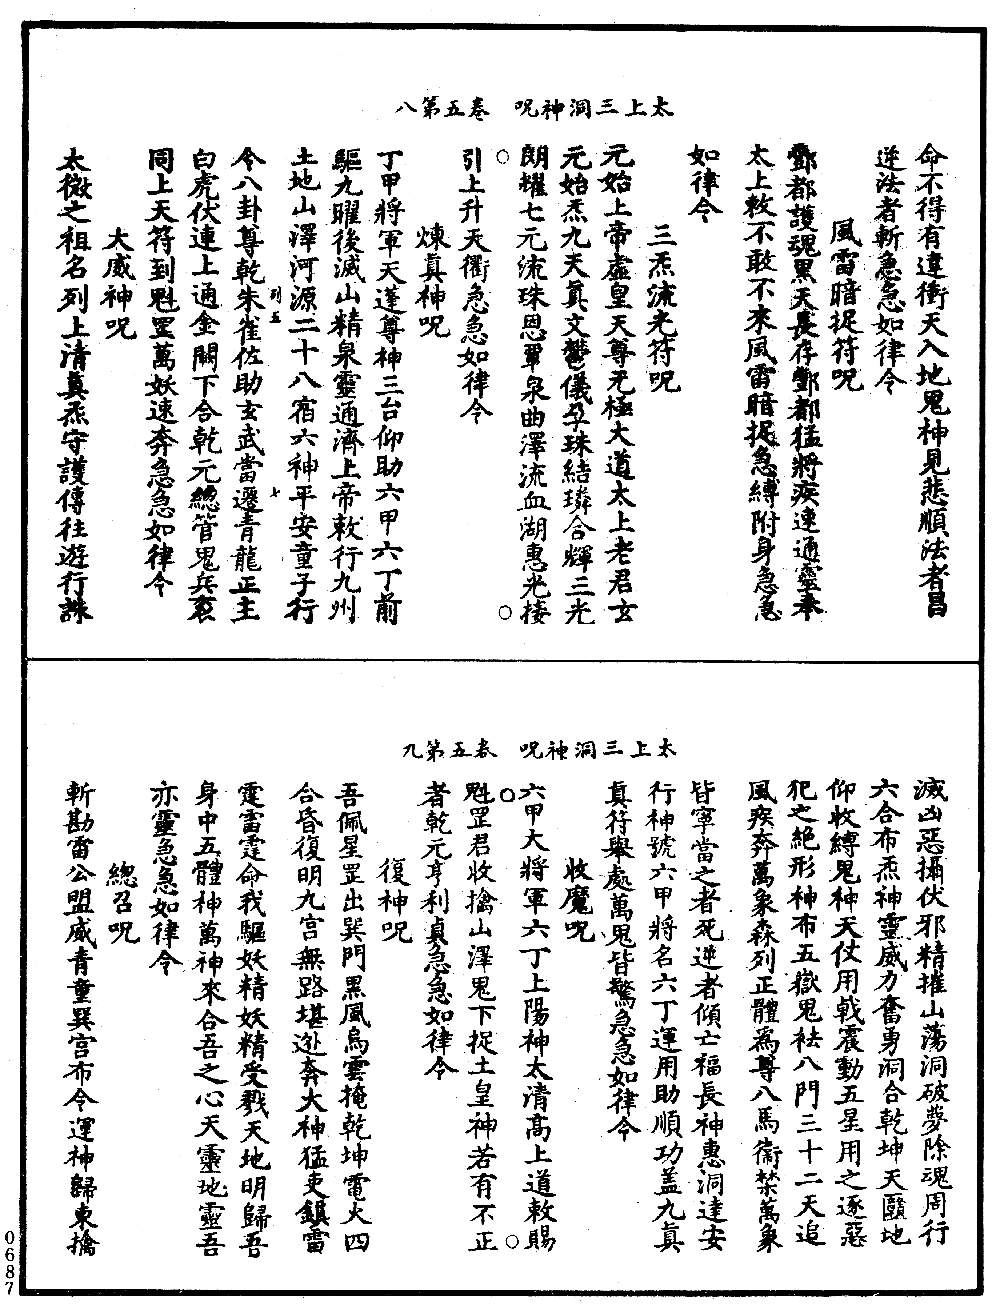 太上三洞神呪　卷五第八
命不得有違衝天入地鬼神見悲順法者昌
逆法者斬急急如律令
風雷暗捉符呪
酆都護魂黑天長存酆都猛將疾速通靈奉
太上敕不敢不來風雷暗捉急縛附身急急
如律令
三炁流光符呪
元始上帝虛皇天尊无極大道太上老君玄
元始炁九天真文鬱儀孕珠結璘合輝三光
朗耀七元流珠恩覃泉曲澤流血湖惠光接
引上升天衢急急如律令
煉真神呪
丁甲將軍天蓬尊神三台仰助六甲六丁前
驅九曜後滅山精泉靈通濟上帝敕行九州
土地山澤河源二十八宿六神平安童子行
列五　七
令八卦尊乾朱雀佐助玄武當遷青龍正主
白虎伏連上通金闕下合乾元總管鬼兵衮
同上天符到魁罡萬妖速奔急急如律令
大威神呪
太微之祖名列上清真炁守護傳往遊行誅
太上三洞神呪　卷五第九
滅凶惡攝伏邪精摧山蕩洞破夢除魂周行
六合布炁神靈威力奮勇洞合乾坤天醫地
仰收縛鬼神天仗用戟震動五星用之逐惡
犯之絶形神布五嶽鬼祛八門三十二天追
風疾奔萬象森列正體爲尊八馬衞禁萬象
皆寧當之者死逆者傾亡福長神惠洞達安
行神號六甲將名六丁運用助順功蓋九真
真符舉處萬鬼皆驚急急如律令
收魔呪
六甲大將軍六丁上陽神太清高上道敕賜
魁罡君收擒山澤鬼下捉土皇神若有不正
者乾元亨利貞急急如律令
復神呪
吾佩星罡出巽門黑風烏雲掩乾坤電火四
合昏復明九宮無路堪逊奔大神猛吏鎮雷
霆雷霆命我驅妖精妖精受戮天地明歸吾
身中五體神萬神來合吾之心天靈地靈吾
亦靈急急如律令
總召呪
斬勘雷公盟威青童巽宮布令運神歸東擒
0687